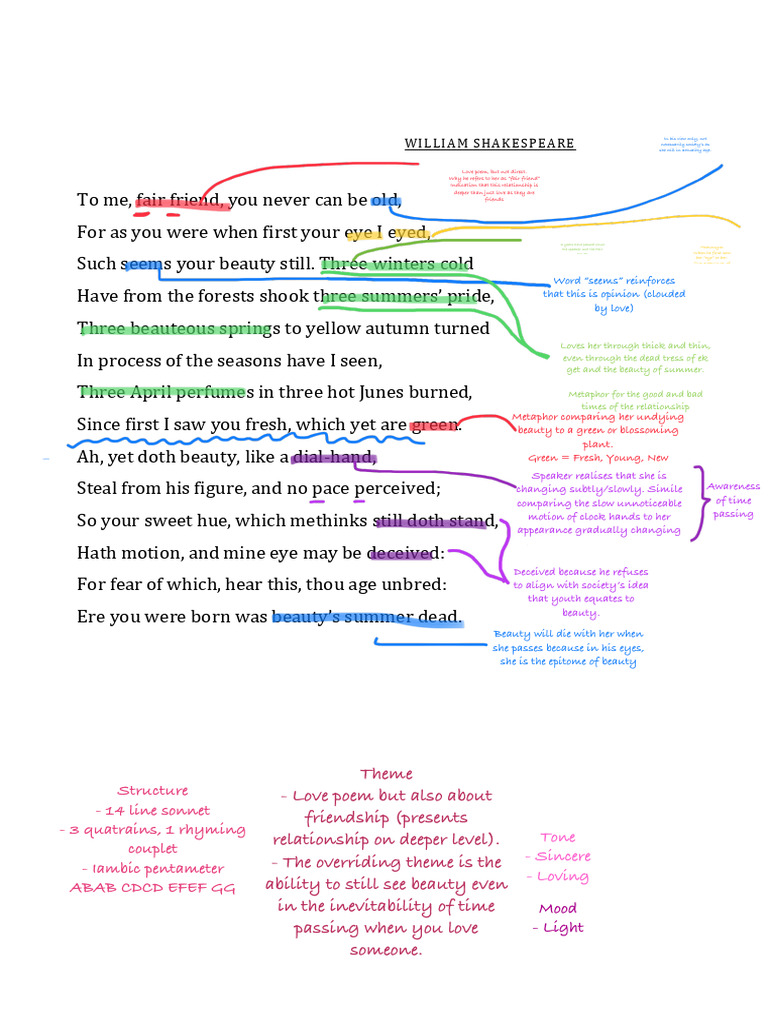 WILLIAM SHAKESPEARE
To me, fair friend, you never can be old,
For as you were when first your eye I eyed,
Such seems your beauty still. Three winters cold
Have from the forests shook three summers' pride,
Three beauteous springs to yellow autumn turned
In process of the seasons have I seen,
Three April perfumes in three hot Junes burned,
Since first I saw you fresh, which yet are green.
Ah, yet doth beauty, like a dial-hand,
Steal from his figure, and no pace perceived;
So your sweet hue, which methinks still doth stand,
Hath motion, and mine eye may be deceived:
For fear of which, hear this, thou age unbred:
Ere you were born was beauty's summer dead.
Love poem, but not direct.
Why he refers to her as "fair friend"
Indication that this relationship is
deeper than just love as they are
friends
Word "seems" reinforces
that this is opinion (clouded
by love)
Loves her through thick and thin,
even through the dead tress of ek
get and the beauty of summer.
Metaphor for the good and bad
times of the relationship
Metaphor comparing her undying
beauty to a green or blossoming
plant.
Green = Fresh, Young, New
Speaker realises that she is
changing subtly/slowly. Simile
comparing the slow unnoticeable
motion of clock hands to her
appearance gradually changing
Awareness
of time
passing
Deceived because he refuses
to align with society's idea
that youth equates to
beauty.
Beauty will die with her when
she passes because in his eyes,
she is the epitome of beauty
Structure
- 14 line sonnet
- 3 quatrains, 1 rhyming
couplet
- Iambic pentameter
ABAB CDCD EFEF GG
Theme
- Love poem but also about
friendship (presents
relationship on deeper level).
- The overriding theme is the
ability to still see beauty even
in the inevitability of time
passing when you love
someone.
Tone
- Sincere
- Loving
Mood
- Light